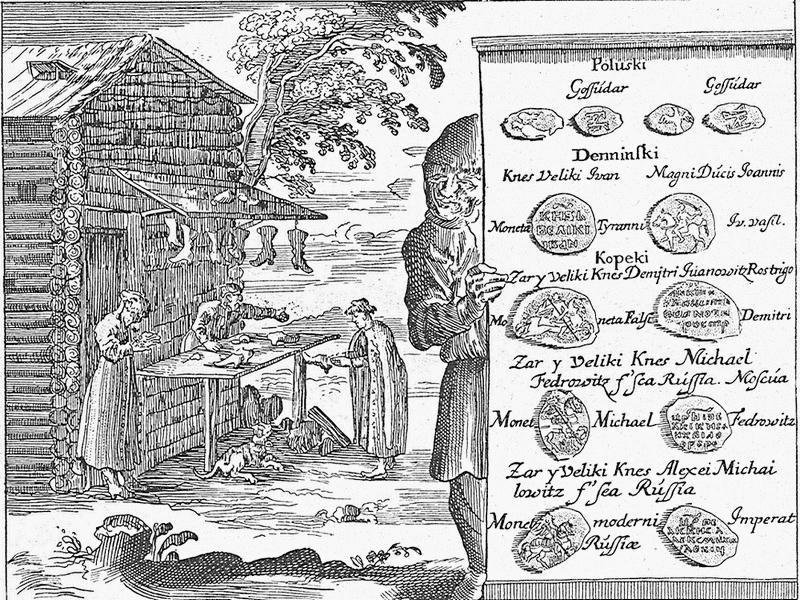 Poluski
Gossúdar Gossúdar
Denninski
Knes Veliki Ivan Magni Dúcis Ioannis
Moneta КНЯЗЬ ВЕЛІКІ ІВАН Tyranni Iv. vasl.
Kopeki
Zar y Veliki Knes Demitri Iuanowitz Rostrigo
Mo neta Falsc Demitri
Zar y Veliki Knes Michael
Fedrowitz f'sea Rússia. Moscúa
Monet Michael Fedrowitz
Zar y Veliki Knes Alexei Michai
lowitz f'sea Rússia
Monet moderni Imperat
Rússiæ